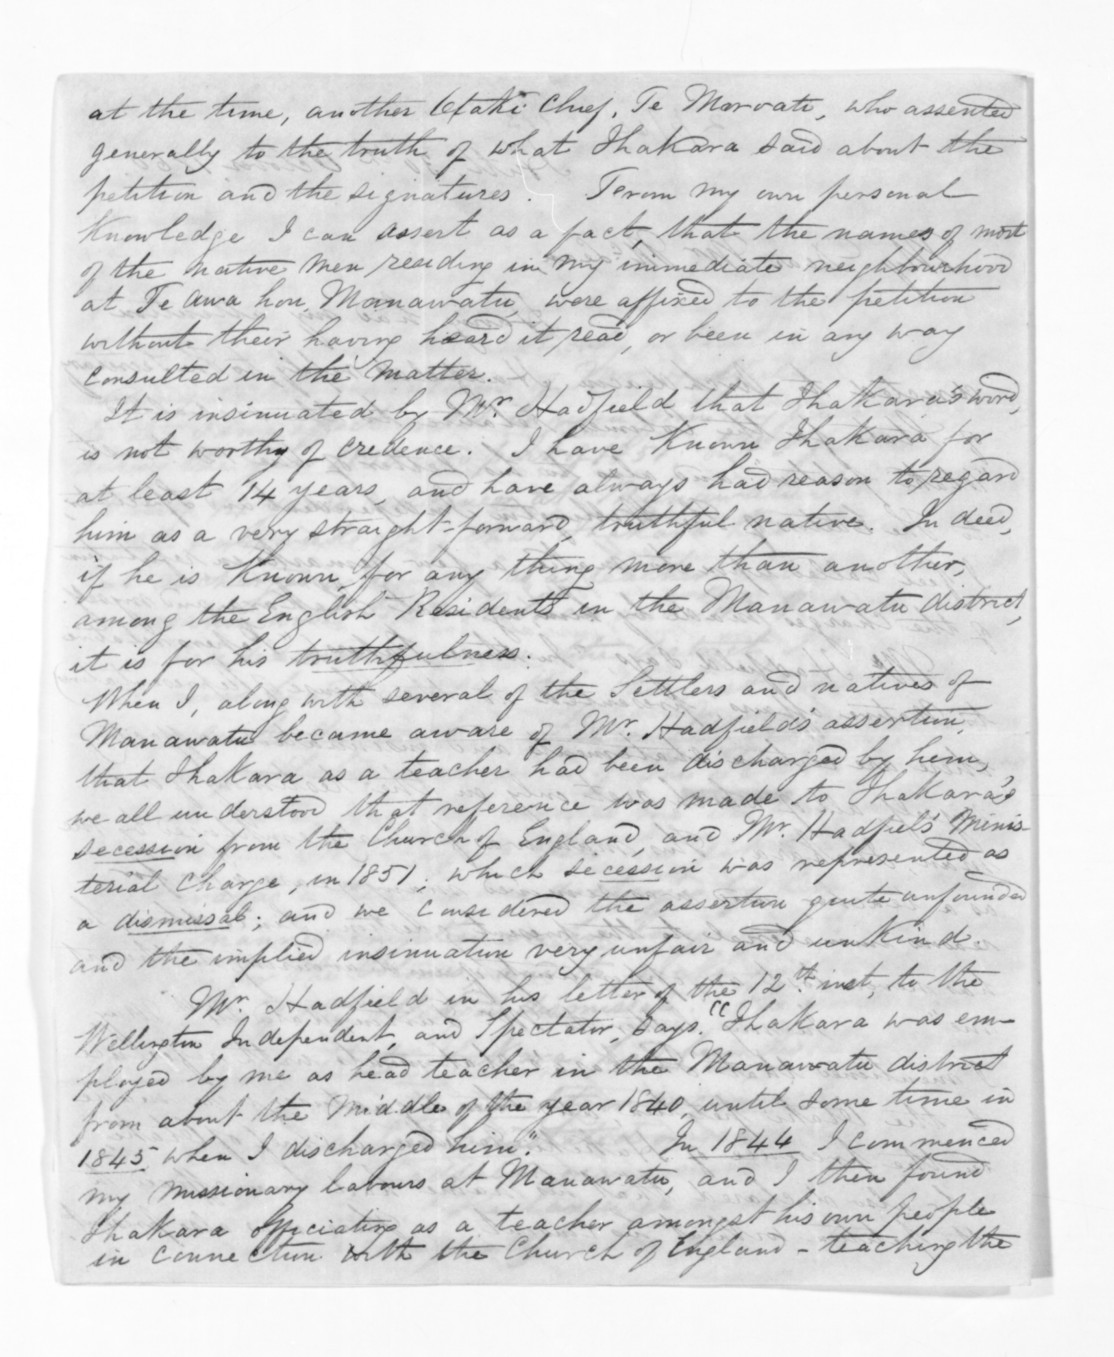 at the time, another Otaki Chief, Te Moroati, who assented
generally to the truth of what Ihakara said about the
petition and the signatures. From my own personal
Knowledge I can assert as a fact, that the names of most
of the native men residing in my immediate neighbourhood
at Te Awa hou, Manawatu, were affixed to the petition
without their having heard it read, or been in any way
consulted in the matter. –
It is insinuated by Mr. Hadfield that Ihakara's word,
is not worthy of credence. I have Known Ihakara for
at least 14 years, and have always had reason to regard
him as a very straight-forward, truthful native. Indeed,
if he is Known, for any thing more than another,
among the English Residents in the Manawatu district,
it is for his truthfulness.
When I, along with several of the Settlers and natives of
Manawatu became aware of Mr. Hadfield's assertion,
that Ihakara as a teacher had been discharged by him,
we all understood that reference was made to Ihakara's
secession from the Church of England, and Mr. Hadfiel's Minis-
terial charge, in 1851, which secession was represented as
a dismissal; and we considered the assertion quite unfounded
and the implied insinuation very unfair and unkind.
Mr. Hadfield in his letter of the 12th. inst, to the
Wellington Independent, and Spectator, says. "Ihakara was em-
ployed by me as head teacher in the Manawatu district
from about the Middle of the year 1840, until some time in
1845 when I discharged him." In 1844 I commenced
my missionary labours at Manawatu, and I then found
Ihakara officiating as a teacher amongst his own people
in connection with the Church of England – teaching the